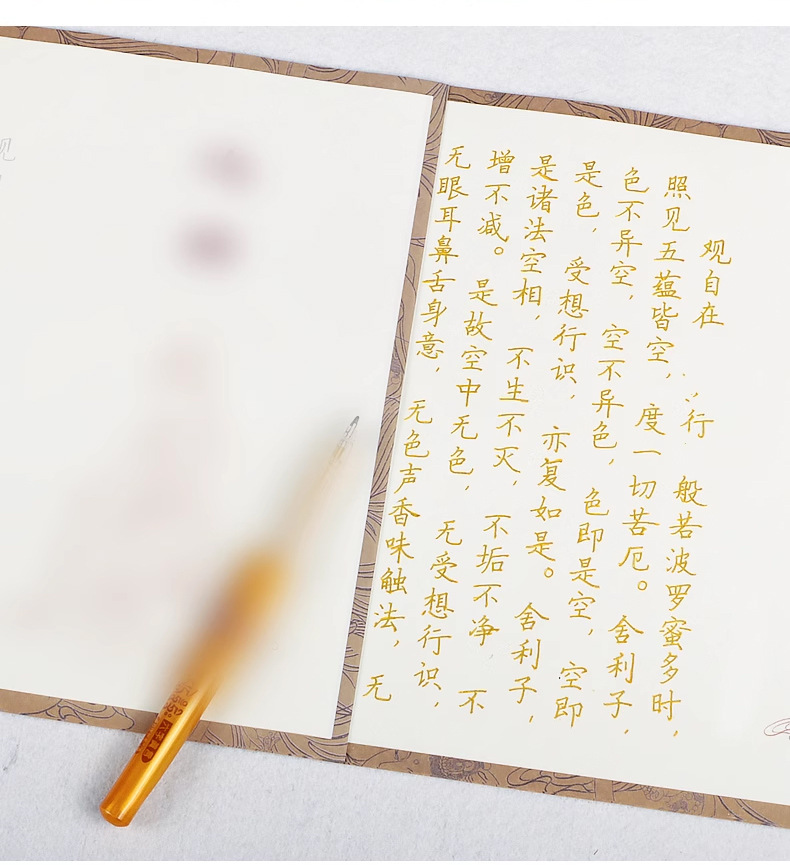 观自在 行般若波罗蜜多时，
照见五蕴皆空，度一切苦厄。舍利子，
色不异空，空不异色，色即是空，空即
是色，受想行识，亦复如是。舍利子，
是诸法空相，不生不灭，不垢不净，不
增不减。是故空中无色，无受想行识，
无眼耳鼻舌身意，无色声香味触法，无